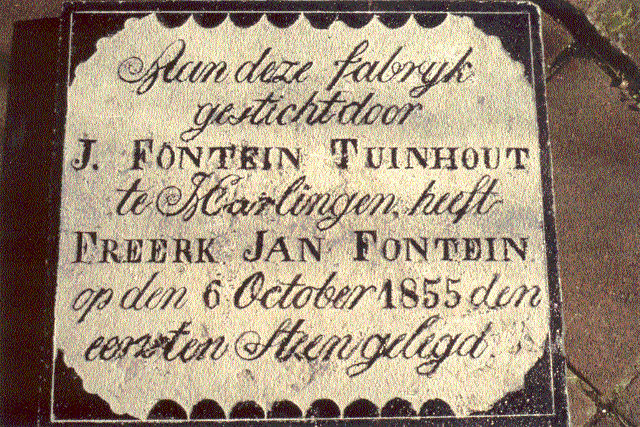 Aan deze fabryk
gesticht door
J. FONTEIN TUINHOUT
te Harlingen, heeft
FREERK JAN FONTEIN
op den 6 October 1855 den
eersten Steen gelegd.